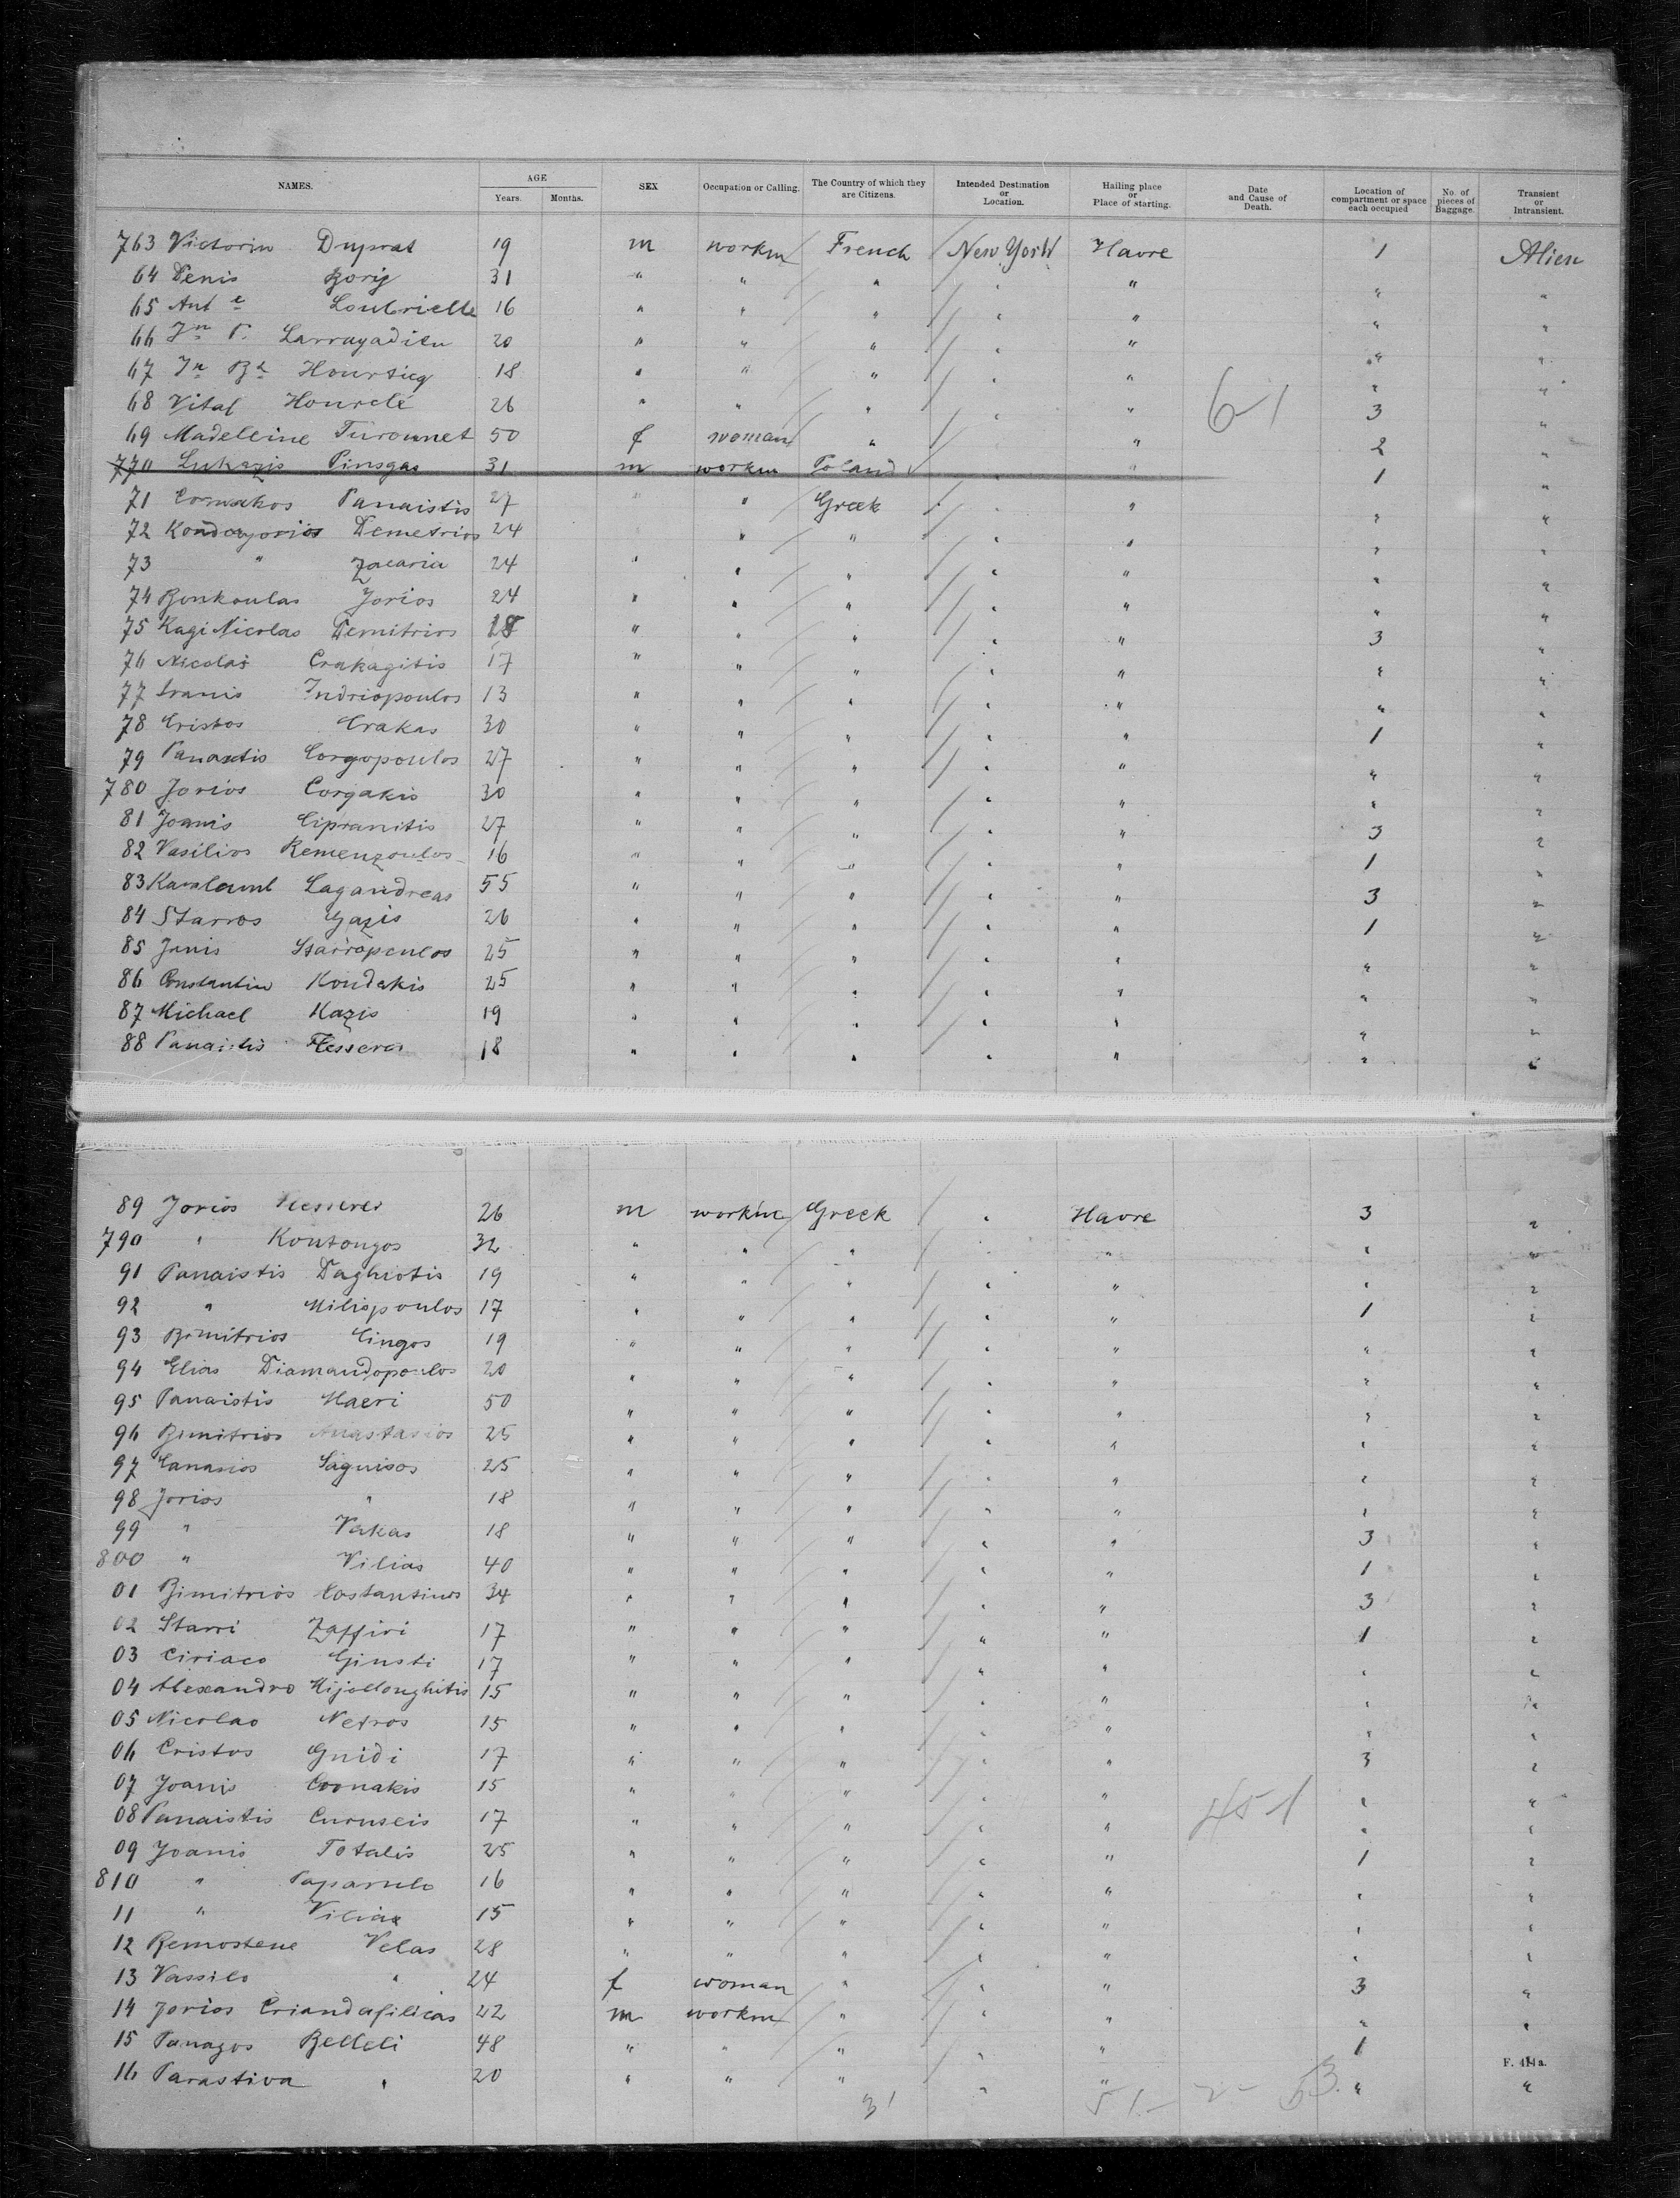 NAMES. AGE SEX Occupation or Calling. The Country of which they are Citizens. Intended Destination or Location. Hailing place or Place of starting. Date and Cause of Death. Location of compartment or space each occupied No. of pieces of Baggage. Transient or Intransient.
Years. Months.
763 Victorin Duprat 19 m workm French New York Havre 1 Alien
64 Denis Borig 31 " " " " " " "
65 Ant e Loubrielle 16 " " " " " " "
66 Jn P. Larrayadieu 20 " " " " " " "
67 Jn Bt Hourticq 18 " " " " " " "
68 Vital Hourclé 26 " " " " " 3 "
6-1
69 Madelleine Turounnet 50 f woman " " 2 "
770 Lukazis Pinsgas 31 m workm Poland " 1 "
71 Cormakos Panaistis 27 " " Greek " " " "
72 Kondayorios Demetrios 24 " " " " " "
73 " Zacaria 24 " " " " " " "
74 Bonkoulas Jorios 24 " " " " " " "
75 Kagi Nicolas Demitrios 18 " " " " " 3 "
76 Nicolas Crakagitis 17 " " " " " " "
77 Iranis Indriopoulos 13 " " " " " " "
78 Cristos Crakas 30 " " " " " 1 "
79 Panaxtis Corgopoulos 27 " " " " " " "
780 Jorios Corgakis 30 " " " " " " "
81 Joanis Cipranitis 27 " " " " " 3 "
82 Vasilios Remenzoulos 16 " " " " " 1 "
83 Karalamb Lagandreas 55 " " " " " 3 "
84 Starros Gazis 26 " " " " " 1 "
85 Janis Starropoulos 25 " " " " " " "
86 Constantin Kondakis 25 " " " " " " "
87 Michael Kazis 19 " " " " " " "
88 Panaistis Flesseros 18 " " " " " " "
89 Jorios 26 m workm Greek " Havre 3 "
790 " Kontongos 32 " " " " " " "
91 Panaistis Daghiotis 19 " " " " " " "
92 " Miliopoulos 17 " " " " " 1 "
93 Bimitrios Cingos 19 " " " " " " "
94 Elias Diamandopoulos 20 " " " " " " "
95 Panaistis Haeri 50 " " " " " " "
96 Bimitrios Anastasios 25 " " " " " " "
97 Canasios Saguisos 25 " " " " " " "
98 Jorios " 18 " " " " " " "
99 " Vakas 18 " " " " " 3 "
800 " Vilias 40 " " " " " 1 "
01 Bimitrios Costantinos 34 " " " " " 3 "
02 Starri Zaffiri 17 " " " " " 1 "
03 Ciriaco Giusti 17 " " " " " " "
04 Alexandro Mijollonghitis 15 " " " " " " "
05 Nicolao Netros 15 " " " " " " "
06 Cristos Guidi 17 " " " " " 3 "
07 Joanis Coonakis 15 " " " " " " "
45-1
08 Panaistis Curuseis 17 " " " " " " "
09 Joanis Totalis 25 " " " " " 1 "
810 " Paparulo 16 " " " " " " "
11 " Vilias 15 " " " " " " "
12 Remostene Velas 28 " " " " " " "
13 Vassilo " 24 f woman " " " 3 "
14 Jorios Criandafilicas 22 m workm " " " " "
15 Panagos Belleli 48 " " " " " 1 "
F. 414a.
16 Parastiva " 20 " " " " " " "
31 51- 2- 53.